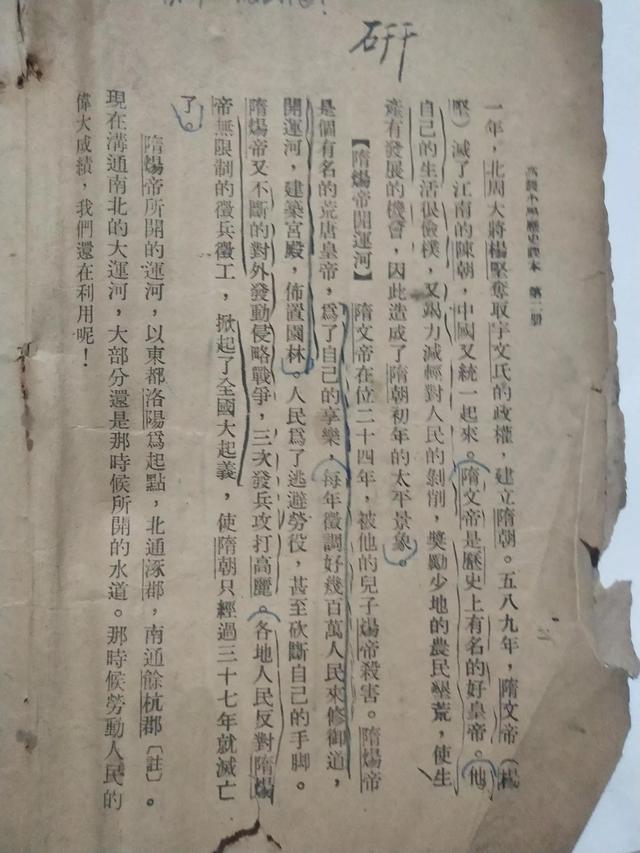 研
高級小學歷史課本 第二冊
一年，北周大將楊堅奪取宇文氏的政權，建立隋朝。五八九年，隋文帝（楊
堅）滅了江南的陳朝，中國又統一起來。隋文帝是歷史上有名的好皇帝。他
自己的生活很儉樸，又竭力減輕對人民的剝削，獎勵少地的農民墾荒，使生
產有發展的機會，因此造成了隋朝初年的太平景象。
【隋煬帝開運河】 隋文帝在位二十四年，被他的兒子煬帝殺害。隋煬帝
是個有名的荒唐皇帝，爲了自己的享樂，每年徵調好幾百萬人民來修御道，
開運河，建築宮殿，佈置園林。人民爲了逃避勞役，甚至砍斷自己的手脚。
隋煬帝又不斷的對外發動侵略戰爭，三次發兵攻打高麗。各地人民反對隋煬
帝無限制的徵兵徵工，掀起了全國大起義，使隋朝只經過三十七年就滅亡
了。
隋煬帝所開的運河，以東都洛陽爲起點，北通涿郡，南通餘杭郡〔註〕。
現在溝通南北的大運河，大部分還是那時候所開的水道。那時候勞動人民的
偉大成績，我們還在利用呢！